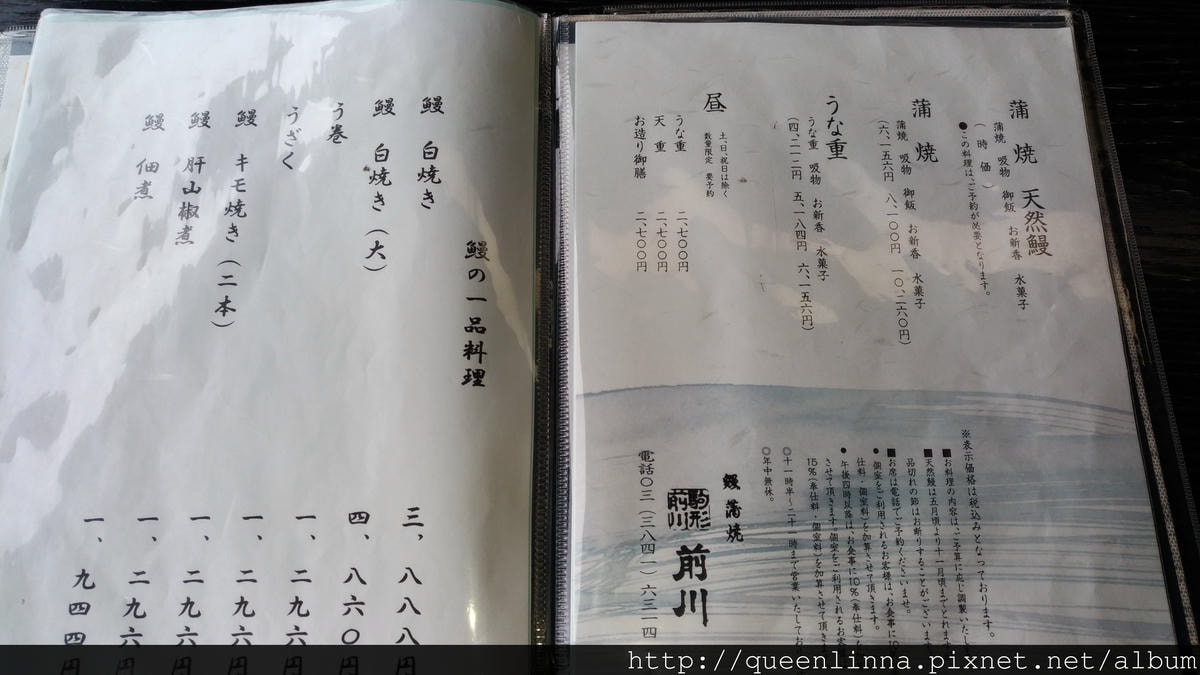 蒲焼 天然鰻
蒲焼 吸物 御飯 お新香 水菓子
(時価)
●この料理は、ご予約が必要となります。
蒲焼
蒲焼 吸物 御飯 お新香 水菓子
(六、一五六円 八、一〇〇円 一〇、二六〇円)
うな重
うな重 吸物 お新香 水菓子
(四、二一二円 五、一八四円 六、一五六円)
昼
土、日、祝日は除く
数量限定 要予約
うな重 二、七〇〇円
天重 二、七〇〇円
お造り御膳 二、七〇〇円
※表示価格は税込みとなっております。
■お料理の内容は、ご予算に応じ調製いたし
■天然鰻は五月頃より十一月頃までとれます
品切れの節はお断りすることがございます
■お席は電話でご予約くださいませ。
●個室をご利用されるお客様は、お会計に10%
仕料・個室料)を加算させて頂きます。
●午後四時以降は、お会計に10%(奉仕料)を
させて頂きます。個室をご利用されるお客
15%(奉仕料・個室料)を加算させて頂きま
◎十一時半〜二十一時まで営業いたしてお
◎年中無休。
鰻 蒲焼
駒形
前川
前川
電話〇三(三八四一)六三一四
鰻の一品料理
鰻 白焼き 三、八八八円
鰻 白焼き(大) 四、八六〇円
う巻 一、二九六円
うざく 一、二九六円
鰻 キモ焼き(二本) 一、二九六円
鰻 肝山椒煮 一、二九六円
鰻 佃煮 一、九四四円
http://queenlinna.pixnet.net/album